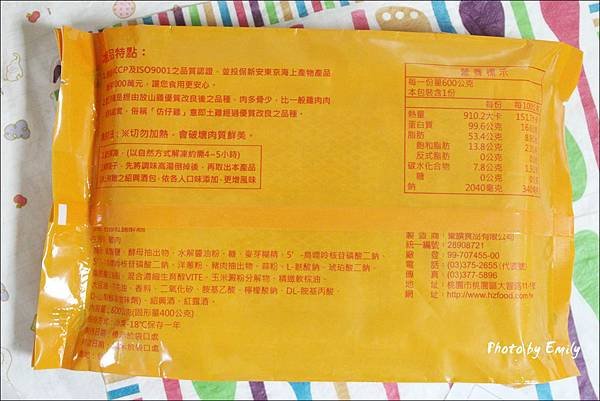 品特點：
CCP及ISO9001之品質認證，並投保新安東京海上產物產品
000萬元，讓您食用更安心。
是經由放山雞優質改良後之品種，肉多骨少，比一般雞肉肉
俗稱「仿仔雞」意即土雞經過優質改良之品種。
法：※切勿加熱，會破壞肉質鮮美。
(以自然方式解凍約需4~5小時)
先將調味高湯倒掉後，再取出本產品
之紹興酒包，依各人口味添加，更增風味
營養標示
每一份量600公克
本包裝含1份
每份 每100公克
熱量 910.2大卡
蛋白質 99.6公克
脂肪 53.4公克
飽和脂肪 13.8公克
反式脂肪 0公克 0公克
碳水化合物 7.8公克
糖 0公克
鈉 2040毫克
雞肉
酵母抽出物、水解醬油粉、糖、麥芽糊精、5'-鳥嘌呤核苷磷酸二鈉、
嘌呤核苷磷酸二鈉、洋蔥粉、豬肉抽出物、蒜粉、L-麩酸鈉、琥珀酸二鈉、
混合濃縮生育醇VITE、玉米澱粉分解物、精緻軟棕油、
香料、二氧化矽、胺基乙酸、檸檬酸鈉、DL-胺基丙酸、
紹興酒、紅露酒。
600公克(固形量400公克)
-18℃保存一年
製造商：
統一編號：28908721
廠登：99-707455-00
電話：(03)375-2655 (代表號)
傳真：(03)377-5896
地址：桃園市桃園區大智路11-1號
網址：http://www.hzfood.com.tw
Photo by Emily